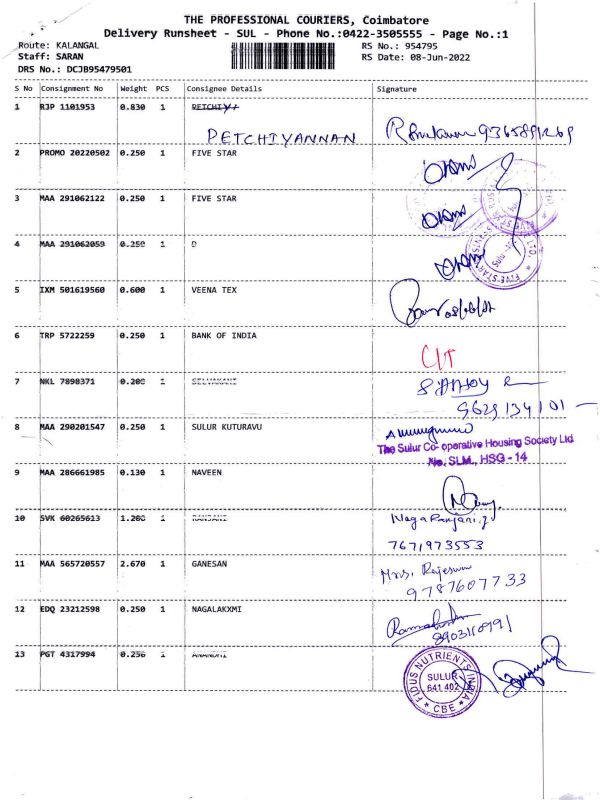 THE PROFESSIONAL COURIERS, Coimbatore
Delivery Runsheet - SUL - Phone No.:0422-3505555 - Page No.:1
Route: KALANGAL RS No.: 954795
Staff: SARAN RS Date: 08-Jun-2022
DRS No.: DCJB95479501
S No Consignment No Weight PCS Consignee Details Signature
1 RJP 1101953 0.830 1 PETCHIY
PETCHIYANNAN
2 PROMO 20220502 0.250 1 FIVE STAR
3 MAA 291062122 0.250 1 FIVE STAR
4 MAA 291062059 0.250 1 D
5 IXM 501619560 0.600 1 VEENA TEX
6 TRP 5722259 0.250 1 BANK OF INDIA
C/T
7 NKL 7898371 0.200 1 SELVAKANI
SANJOY R
9629134101
8 MAA 290201547 0.250 1 SULUR KUTURAVU
The Sulur Co-operative Housing Society Ltd
No. SLM., HSG - 14
9 MAA 286661985 0.130 1 NAVEEN
10 SVK 60265613 1.200 1 RANJANI Naga Ranjani.J
7671973553
11 MAA 565720557 2.670 1 GANESAN Mrs. Rajeswari
9787607733
12 EDQ 23212598 0.250 1 NAGALAKXMI
8903110991
13 PGT 4317994 0.250 1 ANANDHI
FIDUS NUTRIENTS INDIA
SULUR
641 402
CBE